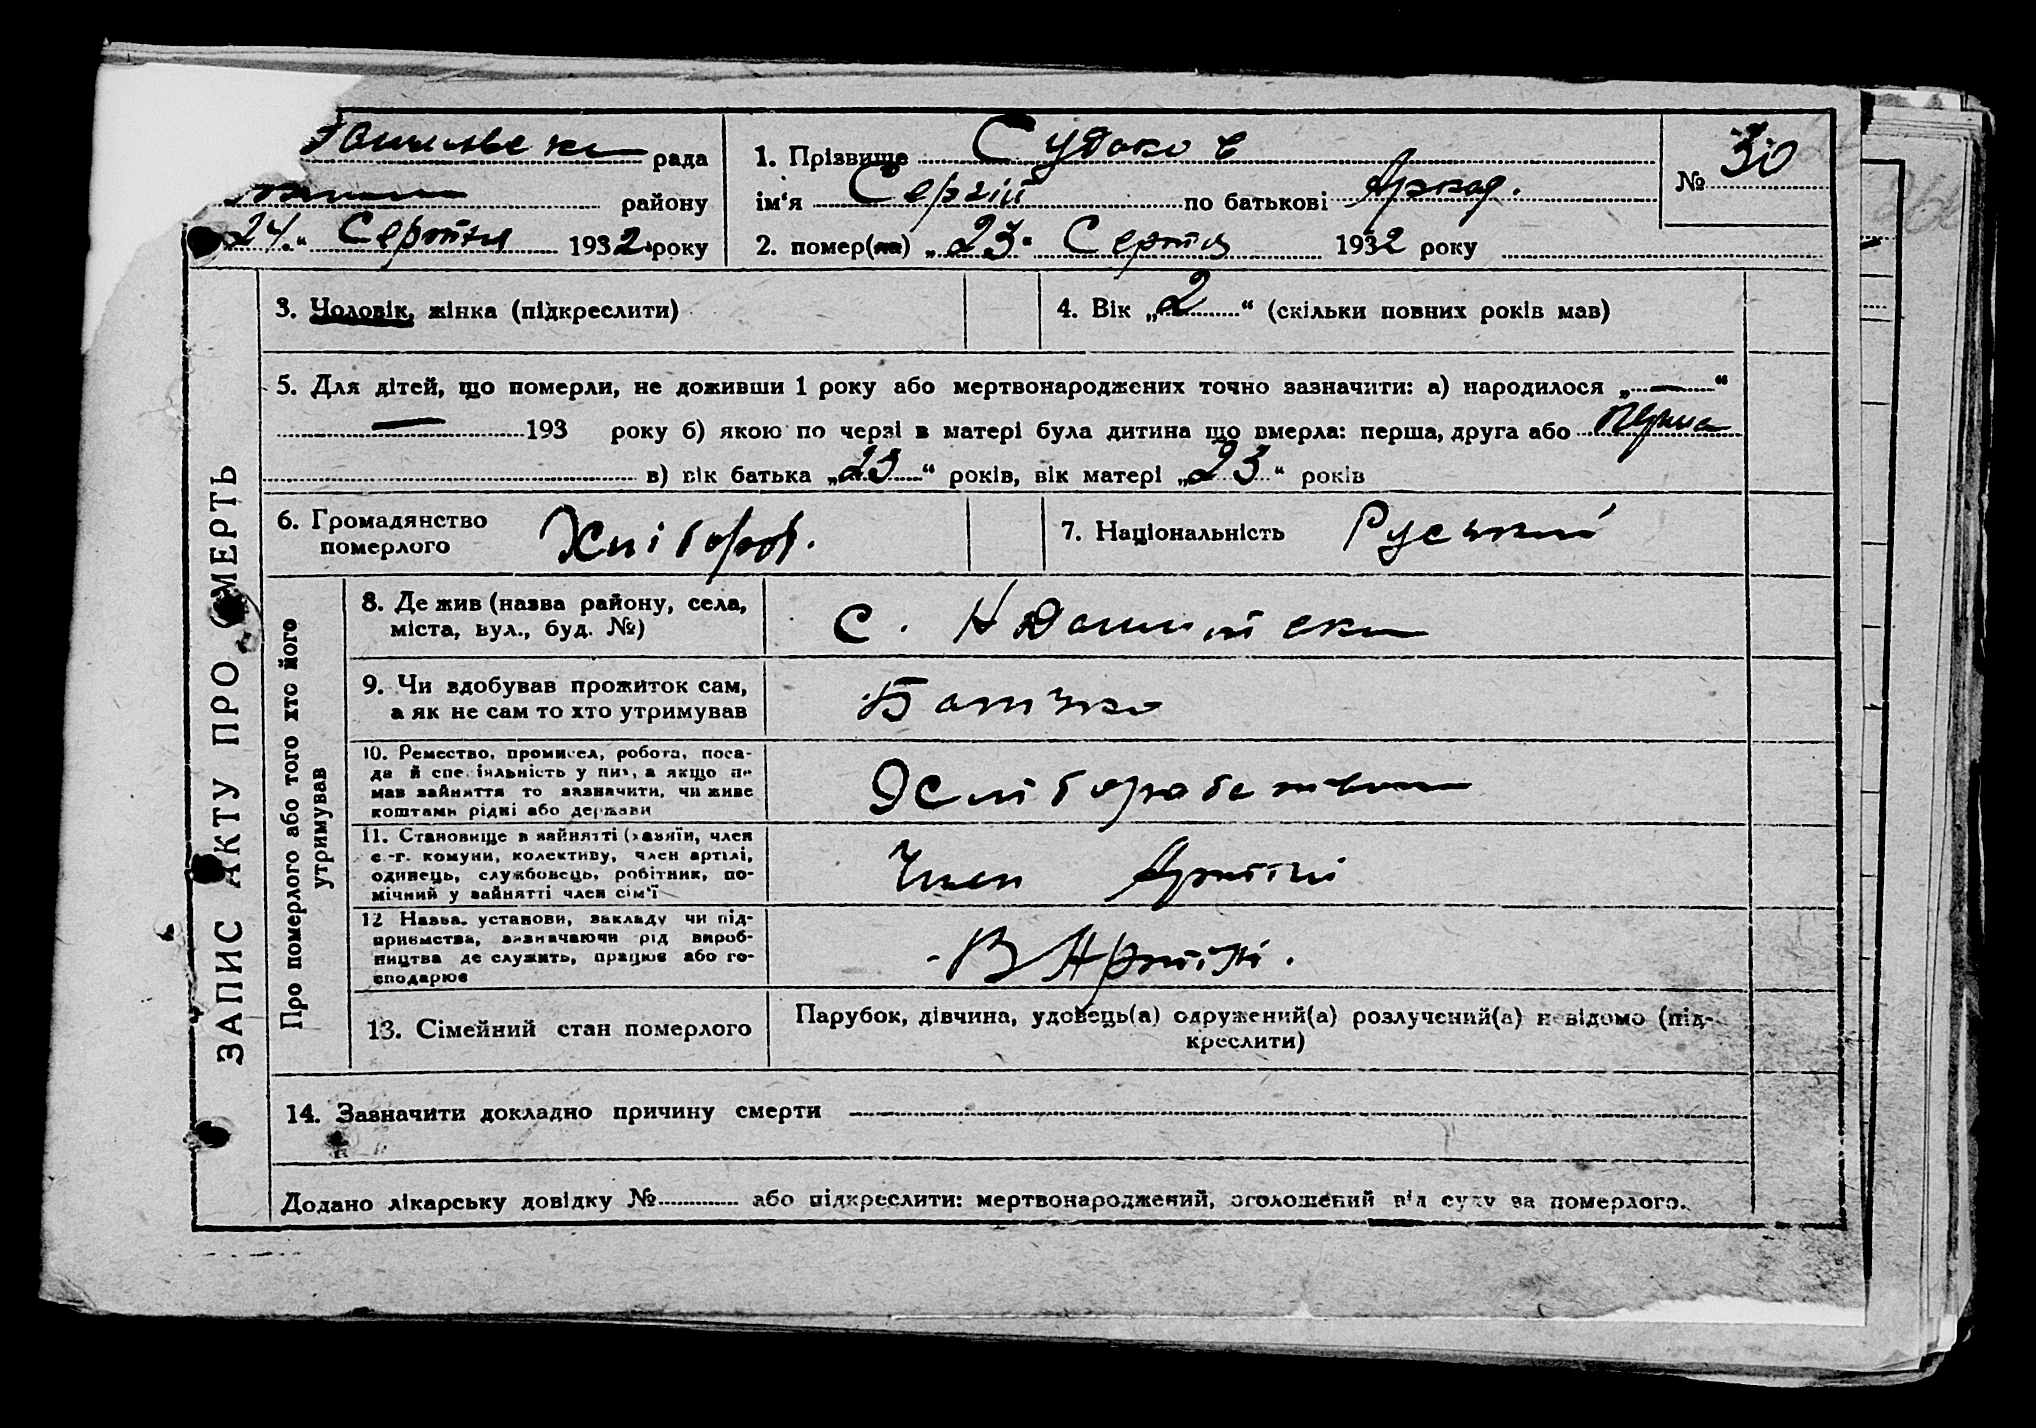 рада
району
24 " Серпня 1932 року
1. Прізвище Судаков
ім'я Сергій по батькові Аркад.
2. помер(ла) „ 23 " Серпня 1932 року
№ 30
ЗАПИС АКТУ ПРО СМЕРТЬ
3. Чоловік, жінка (підкреслити)
4. Вік „ 2 “ (скільки повних років мав)
5. Для дітей, що померли, не доживши 1 року або мертвонароджених точно зазначити: а) народилося „ — “
— 193 року б) якою по черзі в матері була дитина що вмерла: перша, друга або перша
в) вік батька „ 23 “ років, вік матері „ 23 “ років
6. Громадянство
померлого Хлібороб.
7. Національність Руський
Про померлого або того хто його
утримував
8. Де жив (назва району, села,
міста, вул., буд. №)
с.
9. Чи здобував прожиток сам,
а як не сам то хто утримував
Батько
10. Ремество, промисел, робота, поса-
да й спеціяльність у них, а якщо не
мав зайняття то зазначити, чи живе
коштами рідні або держави
Хліборобство
11. Становище в зайнятті (хазяїн, член
с.-г. комуни, колективу, член артілі,
одинець, службовець, робітник, по-
мічний у зайнятті член сім'ї
Член Артілі
12 Назва. установи, закладу чи під-
приємства, зазначаючи рід вироб-
ництва де служить, працює або го-
сподарює
В Артілі.
13. Сімейний стан померлого
Парубок, дівчина, удовець(а) одружений(а) розлучений(а) невідомо (під-
креслити)
14. Зазначити докладно причину смерти
Додано лікарську довідку № або підкреслити: мертвонароджений, оголошений від суду за померлого.